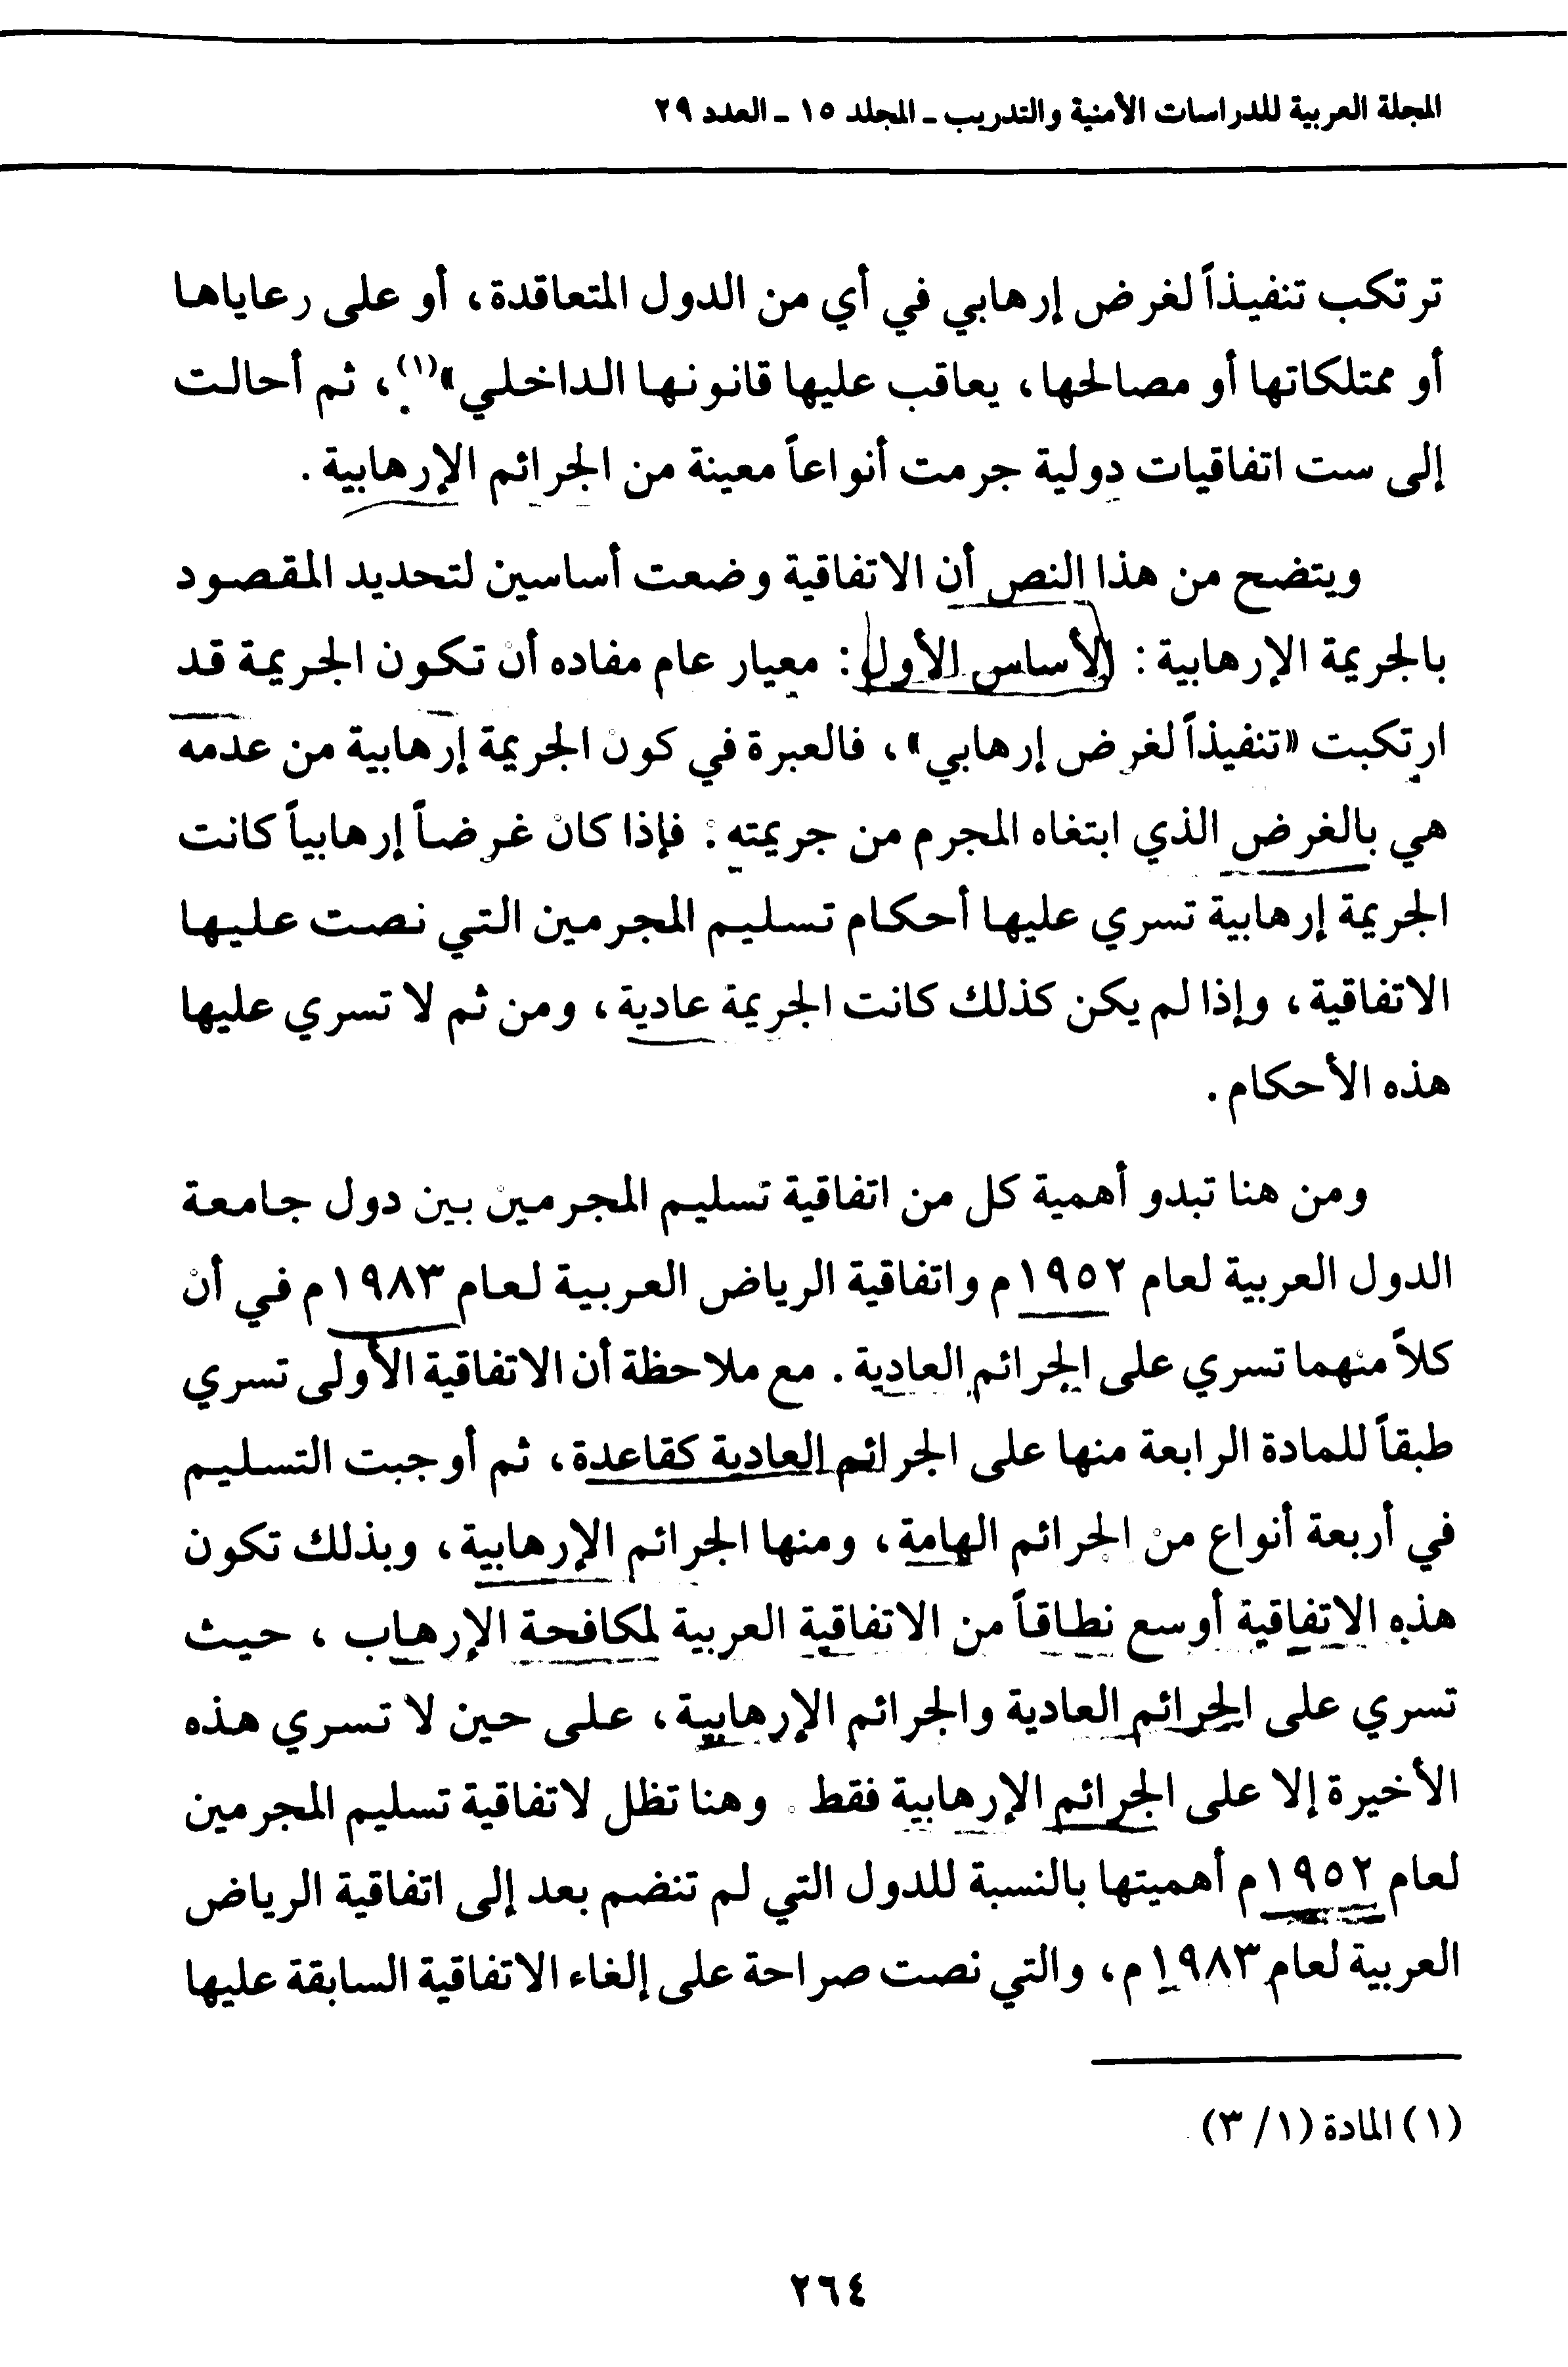 المجلة العربية للدراسات الأمنية والتدريب ـ المجلد ١٥ ـ العدد ٢٩
ترتكب تنفيذاً لغرض إرهابي في أي من الدول المتعاقدة، أو على رعاياها
أو ممتلكاتها أو مصالحها، يعاقب عليها قانونها الداخلي»(١)، ثم أحالت
إلى ست اتفاقيات دولية جرمت أنواعاً معينة من الجرائم الإرهابية.
ويتضح من هذا النص أن الاتفاقية وضعت أساسين لتحديد المقصود
بالجريمة الإرهابية: الأساس الأول: معيار عام مفاده أن تكون الجريمة قد
ارتكبت «تنفيذاً لغرض إرهابي»، فالعبرة في كون الجريمة إرهابية من عدمه
هي بالغرض الذي ابتغاه المجرم من جريمته: فإذا كان غرضاً إرهابياً كانت
الجريمة إرهابية تسري عليها أحكام تسليم المجرمين التي نصت عليها
الاتفاقية، وإذا لم يكن كذلك كانت الجريمة عادية، ومن ثم لا تسري عليها
هذه الأحكام.
ومن هنا تبدو أهمية كل من اتفاقية تسليم المجرمين بين دول جامعة
الدول العربية لعام ١٩٥٢م واتفاقية الرياض العربية لعام ١٩٨٣م في أن
كلاً منهما تسري على الجرائم العادية. مع ملاحظة أن الاتفاقية الأولى تسري
طبقاً للمادة الرابعة منها على الجرائم العادية كقاعدة، ثم أوجبت التسليم
في أربعة أنواع من الجرائم الهامة، ومنها الجرائم الإرهابية، وبذلك تكون
هذه الاتفاقية أوسع نطاقاً من الاتفاقية العربية لمكافحة الإرهاب، حيث
تسري على الجرائم العادية والجرائم الإرهابية، على حين لا تسري هذه
الأخيرة إلا على الجرائم الإرهابية فقط. وهنا تظل لاتفاقية تسليم المجرمين
لعام ١٩٥٢م أهميتها بالنسبة للدول التي لم تنضم بعد إلى اتفاقية الرياض
العربية لعام ١٩٨٣م، والتي نصت صراحة على إلغاء الاتفاقية السابقة عليها
(١) المادة (١/ ٣)
٢٦٤